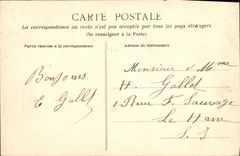 CARTE POSTALE
La correspondance au recto n'est pas acceptée par tous les pays étrangers
(Se renseigner à la Poste)
Partie réservée à la correspondance
Adresse du destinataire
Bonjours
E Gallot
Monsieur et Mme
H. Gallot
1 Rue F. Sauvage
Le Havre
S. I